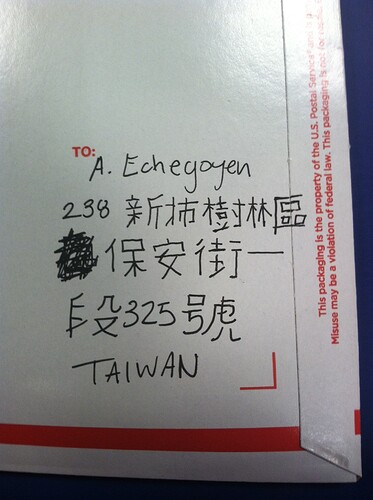 TO:
A. Echegoyen
238 新市樹林區
保安街一
段325号虎
TAIWAN
This packaging is the property of the U.S. Postal Service®
Misuse may be a violation of federal law. This packaging is not for